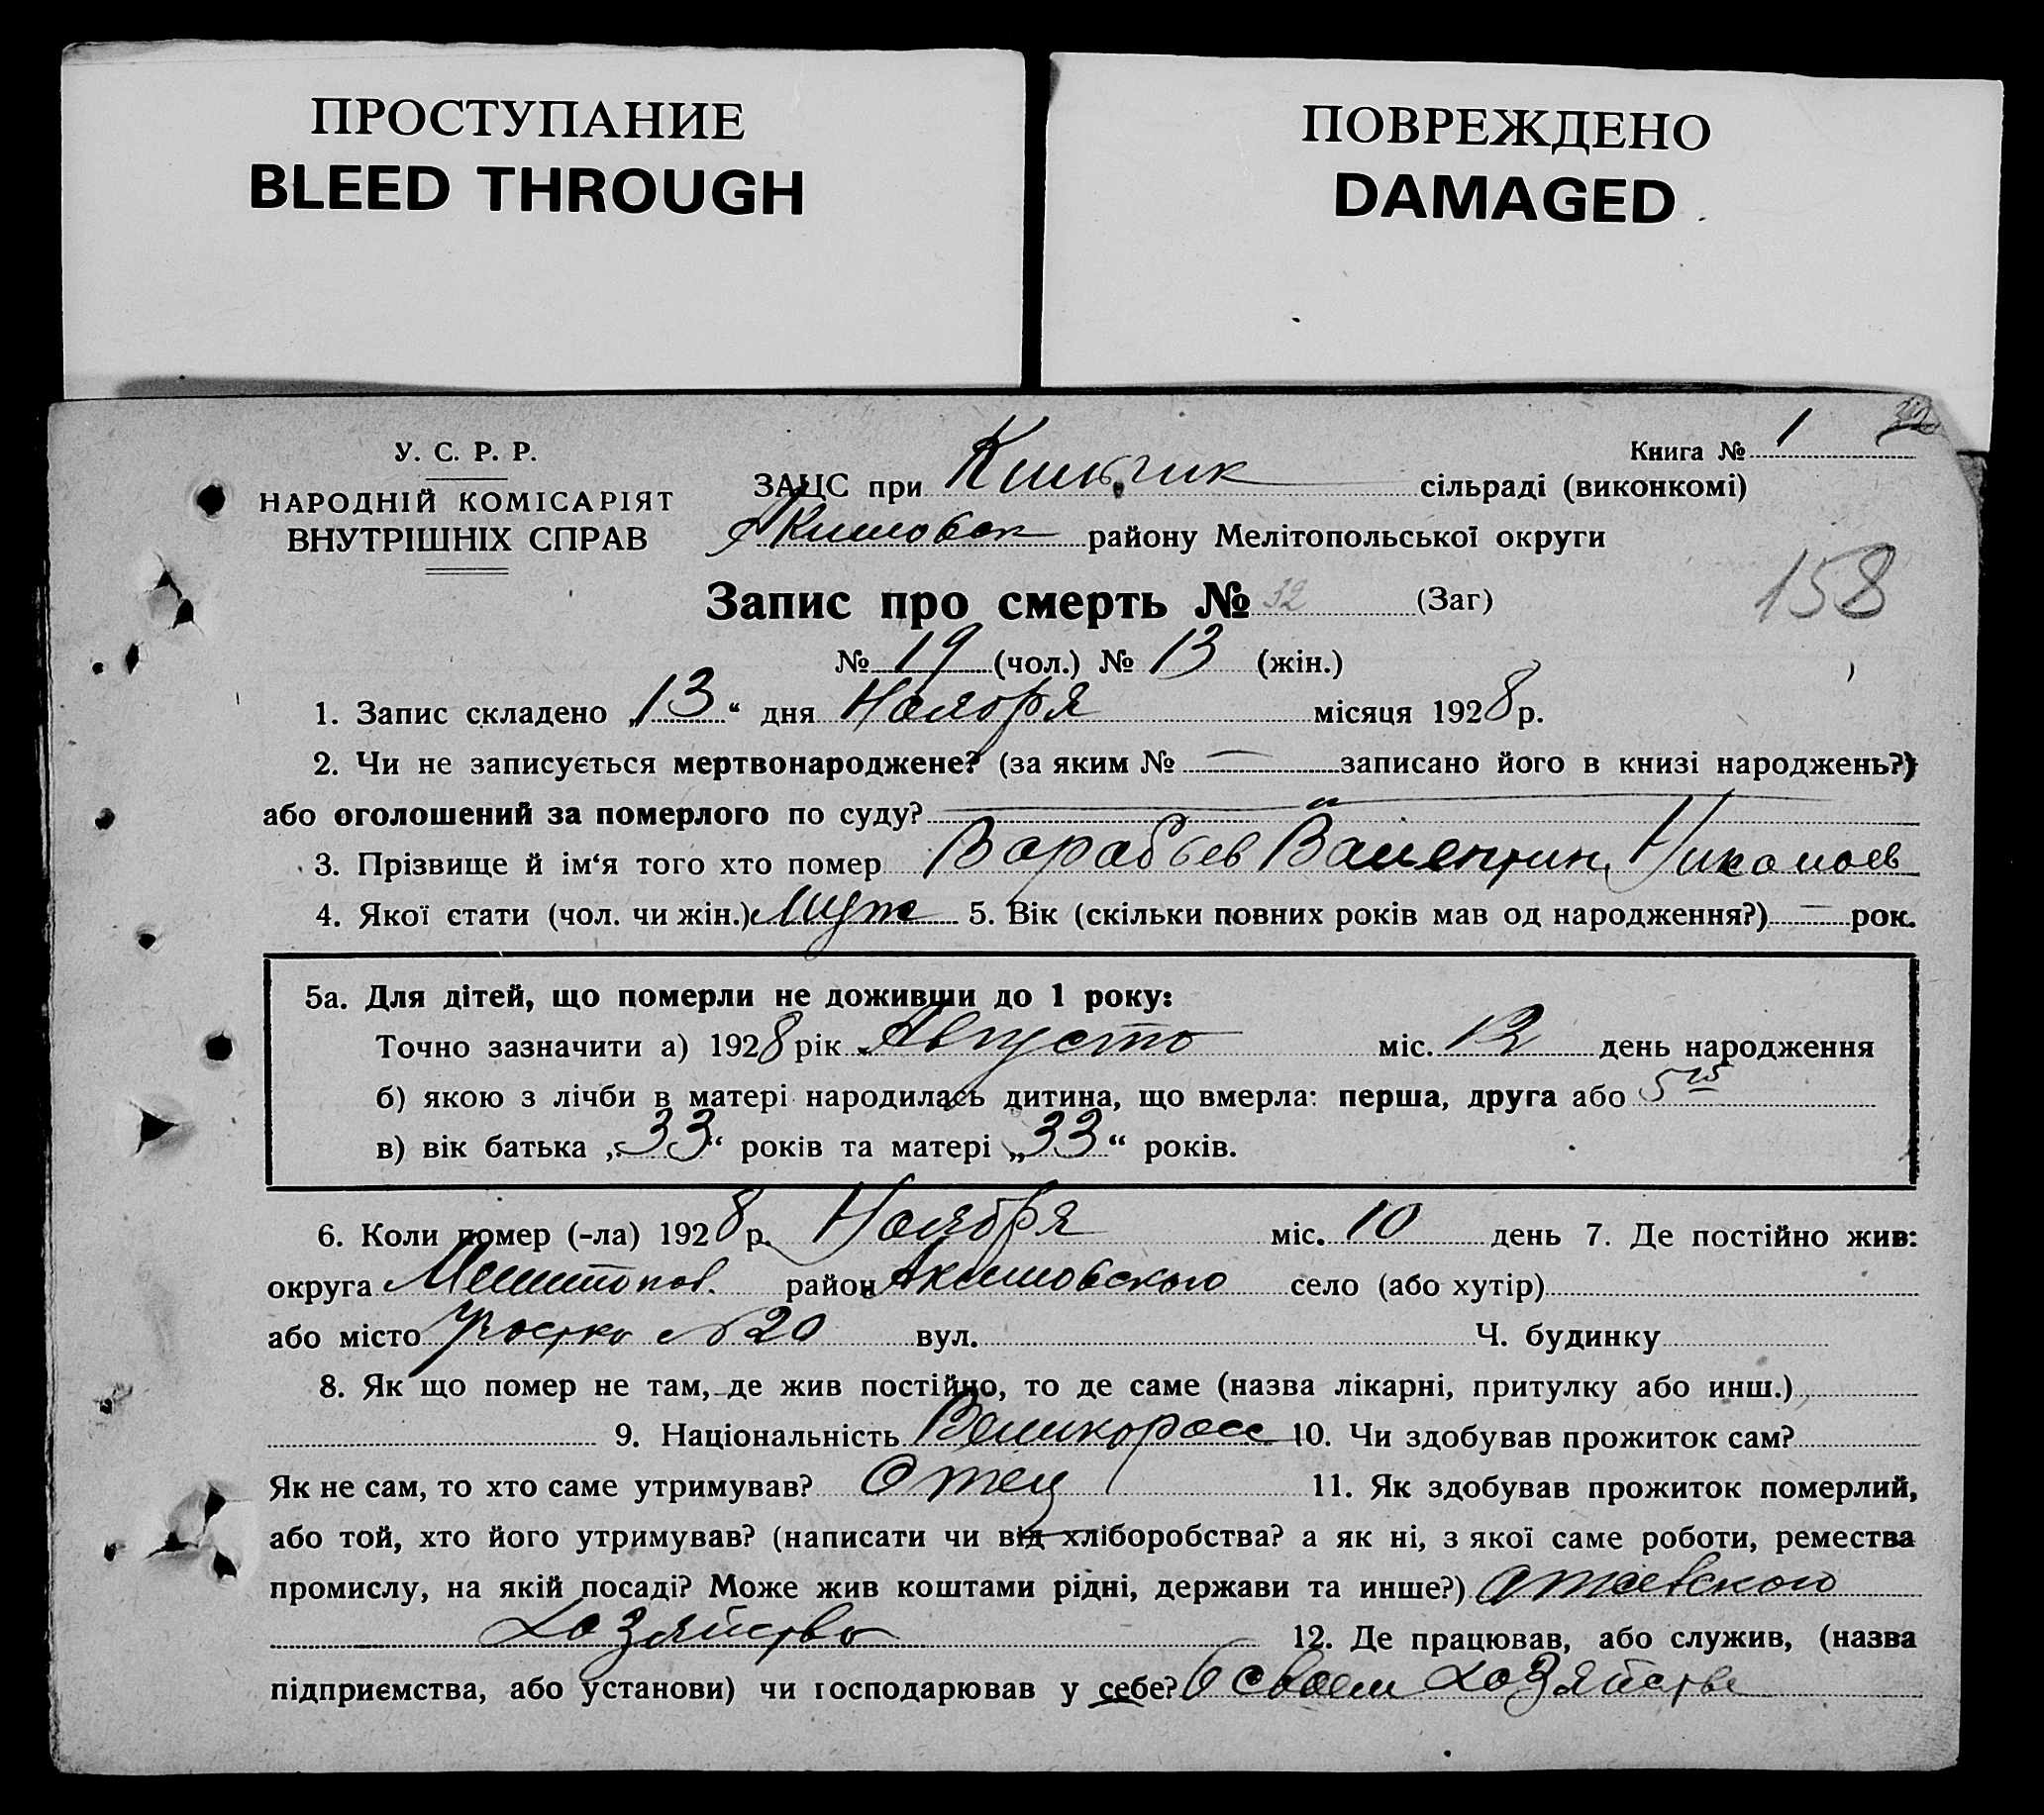 ПРОСТУПАНИЕ
BLEED THROUGH
ПОВРЕЖДЕНО
DAMAGED
Книга № 1
У. С. Р. Р.
НАРОДНІЙ КОМІСАРІЯТ
ВНУТРІШНІХ СПРАВ
ЗАЦС при сільраді (виконкомі)
Акимовск району Мелітопольської округи
158
Запис про смерть № 32 (Заг)
№ 19 (чол.) № 13 (жін.)
1. Запис складено „13“ дня Ноября місяця 1928 р.
2. Чи не записується мертвонароджене? (за яким № — записано його в книзі народжень?)
або оголошений за померлого по суду?
3. Прізвище й ім‘я того хто помер Варабьев Валентин Николаев
4. Якої стати (чол. чи жін.) муж 5. Вік (скільки повних років мав од народження?) — рок.
5а. Для дітей, що померли не доживши до 1 року:
Точно зазначити а) 1928 рік Августо міс. 12 день народження
б) якою з лічби в матері народилась дитина, що вмерла: перша, друга або 5
в) вік батька „33“ років та матері „33“ років.
6. Коли помер (-ла) 1928 р. Ноября міс. 10 день 7. Де постійно жив:
округа Мелитопол. район Акимовского село (або хутір)
або місто Участко №20 вул. Ч. будинку
8. Як що помер не там, де жив постійно, то де саме (назва лікарні, притулку або инш.)
9. Національність Великоросс 10. Чи здобував прожиток сам?
Як не сам, то хто саме утримував? Отец 11. Як здобував прожиток померлий,
або той, хто його утримував? (написати чи від хліборобства? а як ні, з якої саме роботи, ремества
промислу, на якій посаді? Може жив коштами рідні, держави та инше?)
Хозяйство 12. Де працював, або служив, (назва
підприємства, або установи) чи господарював у себе? в своем хозяйстве